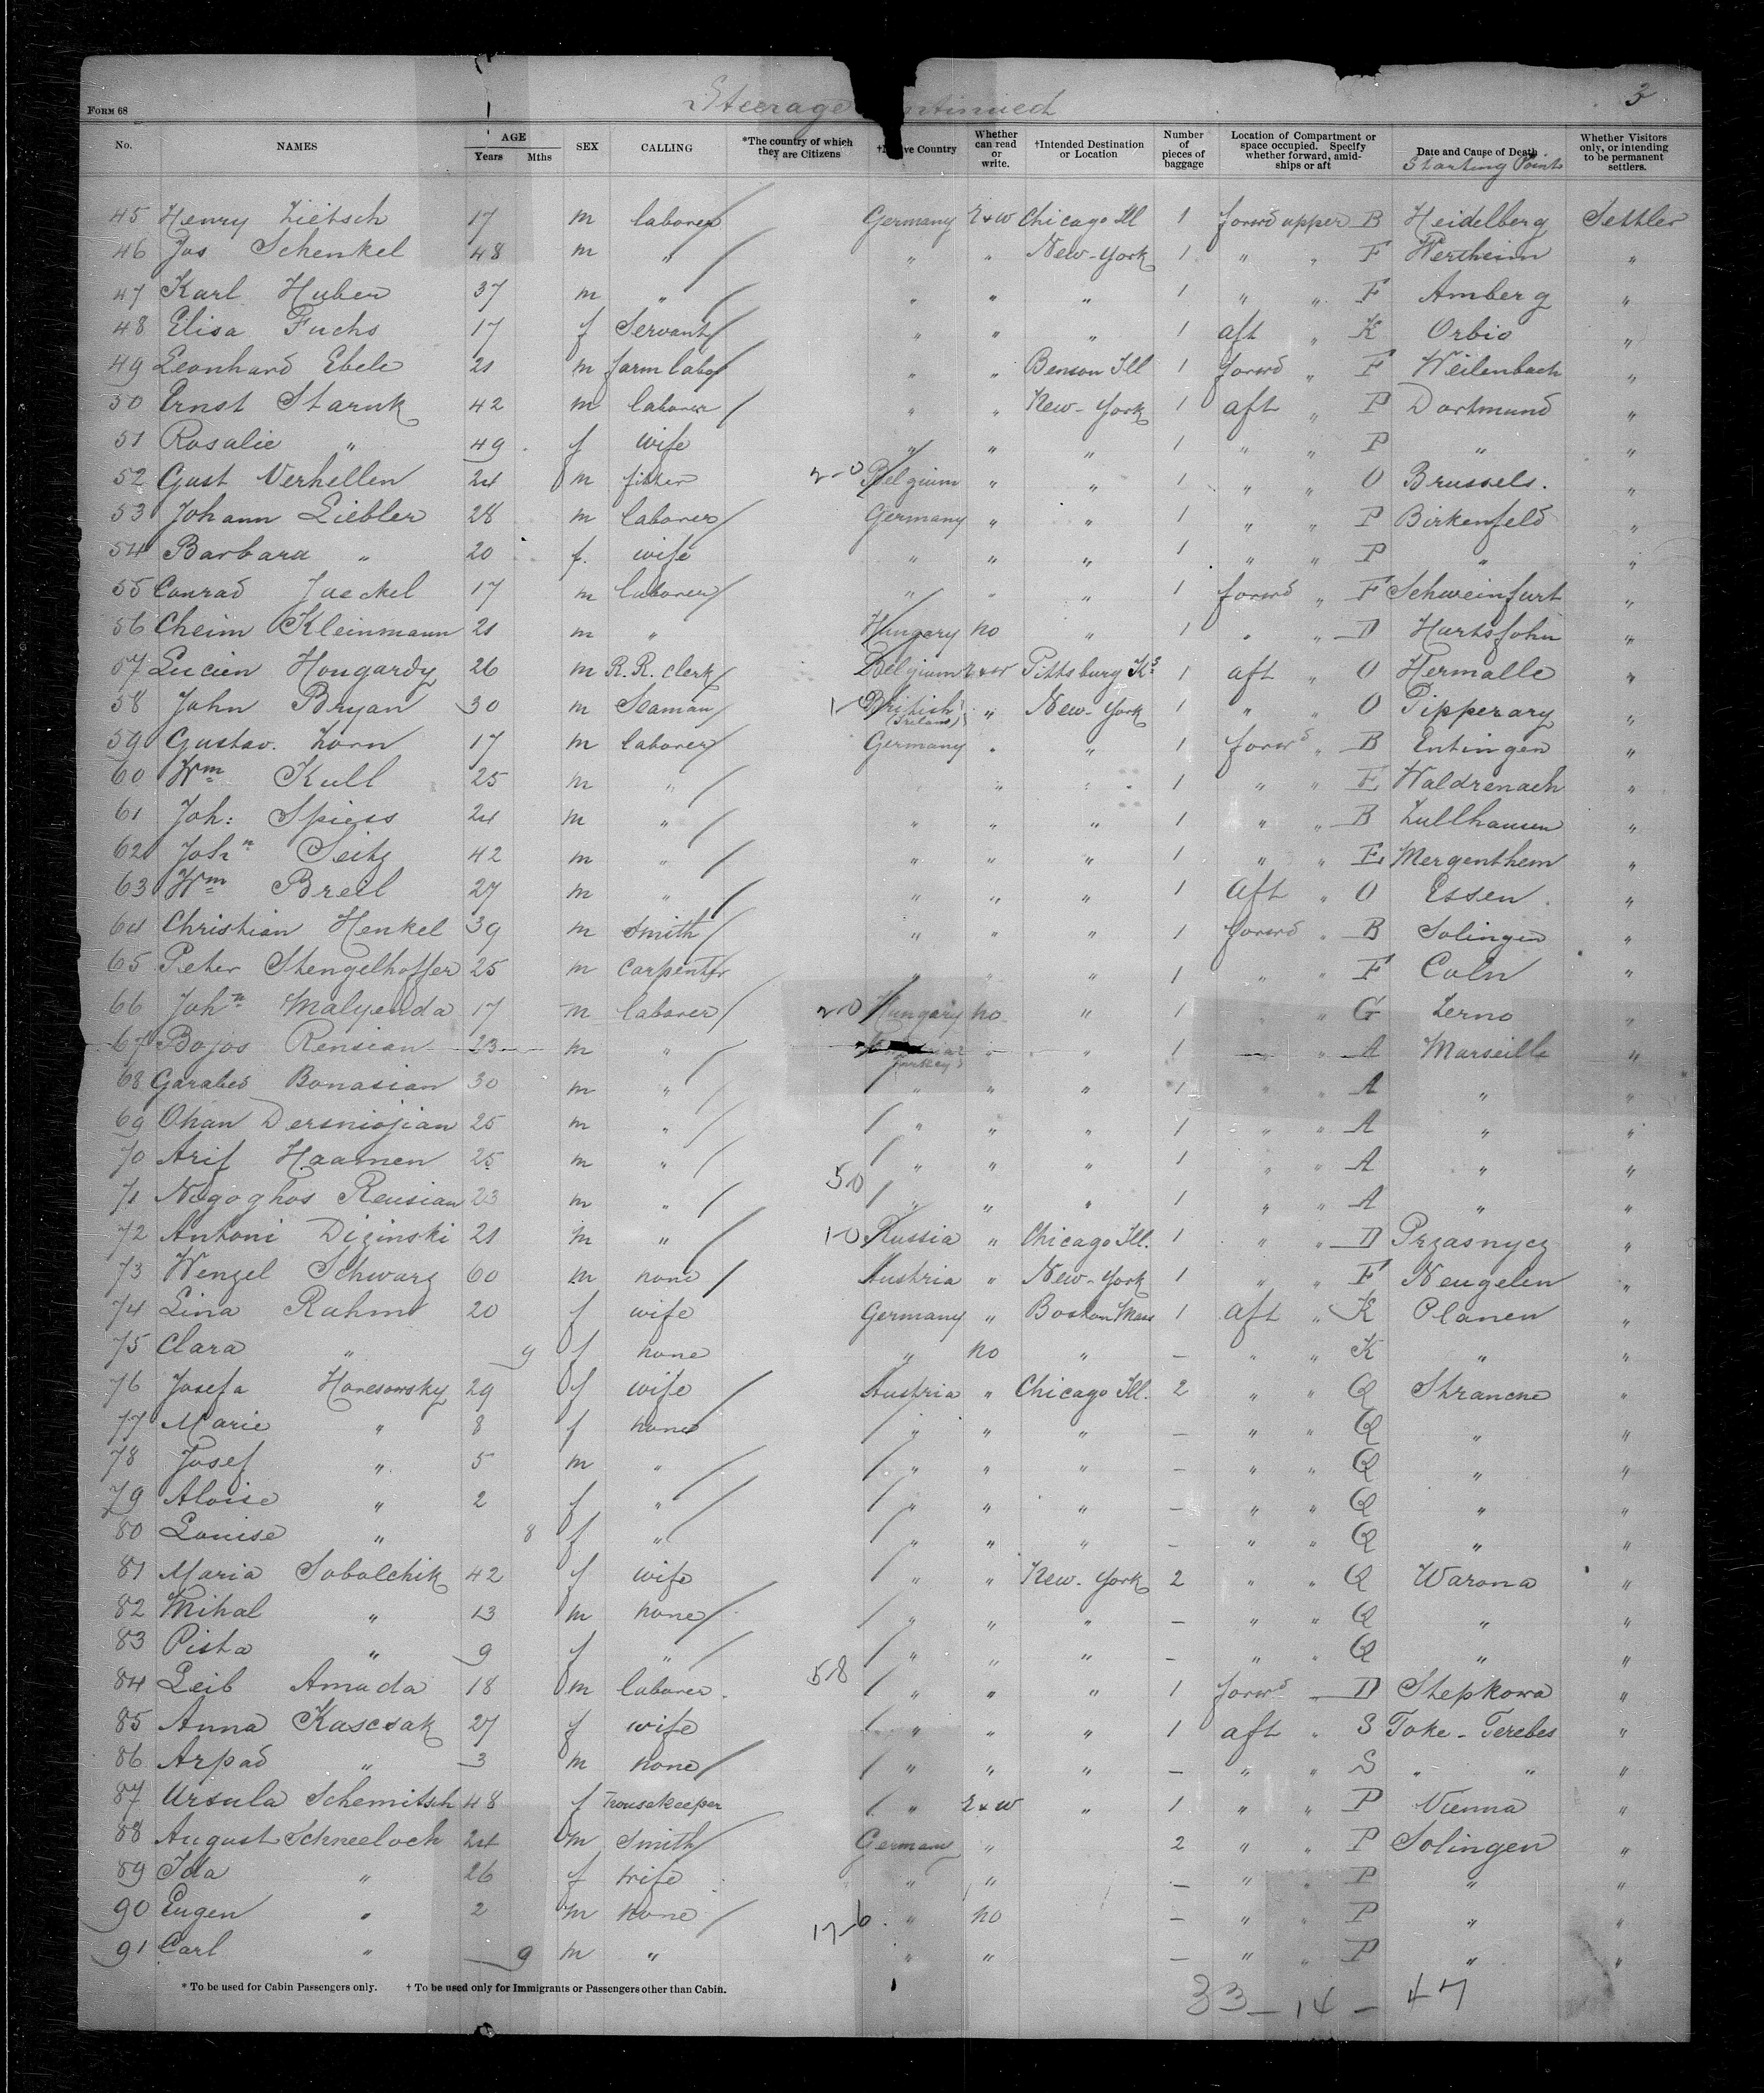 Steerage ntinued 3
FORM 68
No. NAMES AGE Years Mths SEX CALLING *The country of which they are Citizens †N ve Country Whether can read or write. †Intended Destination or Location Number of pieces of baggage Location of Compartment or space occupied. Specify whether forward, amid-ships or aft Date and Cause of Death Starting Point Whether Visitors only, or intending to be permanent settlers.
45 Henry Zietsch 17 m laborer Germany r&w Chicago Ill 1 forwd upper B Heidelberg Settler
46 Jos Schenkel 48 m " " " New-York 1 " " F Wertheim "
47 Karl Huber 37 m " " " " 1 " " F Amberg "
48 Elisa Fuchs 17 f Servant " " " 1 aft " K Orbis "
49 Leonhard Ebele 21 m farm labor " " Benson Ill 1 forwd " F Weilenbach "
50 Ernst Starnk 42 m laborer " " New-York 1 aft " P Dortmund "
51 Rosalie " 49 f wife " " " 1 " " P " "
52 Gust Verhellen 24 m fitter 2-0 Belgium " " 1 " " O Brussels. "
53 Johann Liebler 28 m laborer Germany " " 1 " " P Birkenfeld "
54 Barbara " 20 f. wife " " " 1 " " P " "
55 Conrad Jaeckel 17 m laborer " " " 1 forwd " F Schweinfurt "
56 Cheim Kleinmann 21 m " Hungary no " 1 " " D Hartsfohn "
57 Lucien Hougardy 26 m R.R. clerk Belgium r&w Pittsburg Ks 1 aft " O Hermalle "
58 John Bryan 30 m Seaman 1- British (Ireland) " New-York 1 " " O Tipperary "
59 Gustav. Zorn 17 m laborer Germany " " 1 forwd " B Entingen "
60 Wm Kull 25 m " " " 1 " " E Waldrenach "
61 Joh: Spiess 24 m " " " " 1 " " B Zullhausen "
62 John Seitz 42 m " " " " 1 " " E Mergenthem "
63 Wm Breil 27 m " " " " 1 aft " O Essen. "
64 Christian Henkel 39 m Smith " " " 1 forwd " B Solingen "
65 Peter Stengelhoffer 25 m carpenter " " " 1 " " F Coln "
66 John Malyenda 17 m laborer 2-0 Hungary no " 1 " " G Zerno "
67 Bojos Rensian 23 m " Turkey " " 1 " " A Marseille "
68 Garabed Bonasian 30 m " " " " 1 " " A " "
69 Ohan Dersniojian 25 m " " " " 1 " " A " "
70 Arif Haamen 25 m " " " " 1 " " A " "
71 Nogoghos Reusian 23 m " 5-0 " " " 1 " " A " "
72 Antoni Dizinski 21 m " 1-0 Russia " Chicago Ill. 1 " " D Przasnycz "
73 Wenzel Schwarz 60 m none Austria " New-York 1 " " F Neugelen "
74 Lina Rahm 20 f wife Germany " Boston Mass 1 aft " K Planen "
75 Clara " 9 f none " no " — " " K " "
76 Josefa Horesowsky 29 f wife Austria " Chicago Ill. 2 " " Q Strancne "
77 Marie " 8 f none " " " — " " Q " "
78 Josef " 5 m " " " " — " " Q " "
79 Aloise " 2 f " " " " — " " Q " "
80 Louise " 8 f " " " " — " " Q " "
81 Maria Sobolchik 42 f wife " " New-York 2 " " Q Warona "
82 Mihal " 13 m none " " " — " " Q " "
83 Pista " 9 f " " " " — " " Q " "
84 Leib Amada 18 m laborer. 5-8 " " " 1 forwd D Stepkowa "
85 Anna Kascsak 27 f wife " " " 1 aft " S Toke-Terebes "
86 Arpad " 3 m none " " " — " " S " " "
87 Ursula Schemitsch 48 f Housekeeper " r&w " 1 " " P Vienna "
88 August Schneeloch 24 m Smith Germany " 2 " " P Solingen "
89 Ida " 26 f wife " " — " " P " "
90 Eugen " 2 m none 17-6. " no — " " P " "
91 Carl " 9 m " " " — " " P " "
* To be used for Cabin Passengers only. † To be used only for Immigrants or Passengers other than Cabin.
33 — 14 — 47